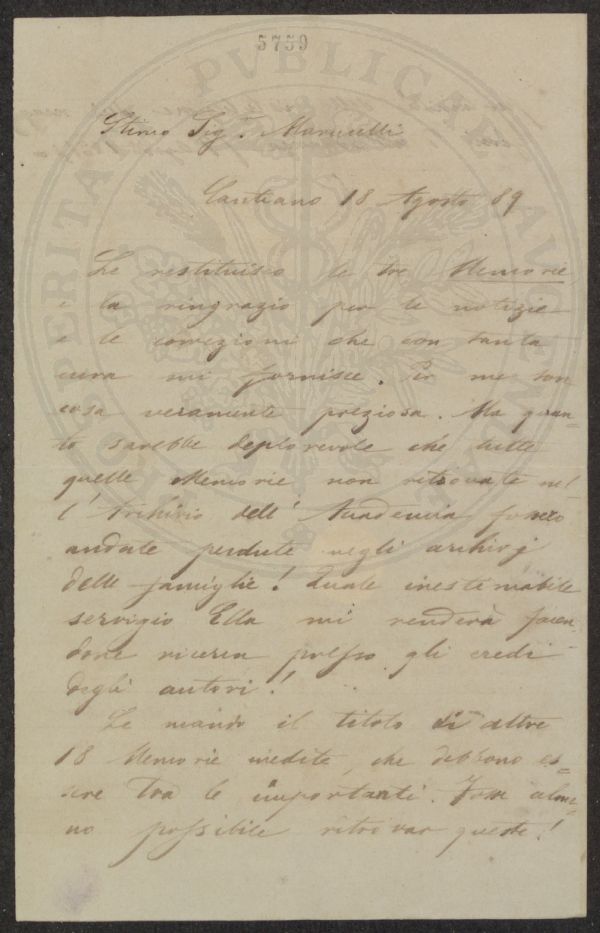 5759
PVBLICAE
PROSPERITATI
AVGENDAE
Stimo Sigr. Marucelli
Cantiano 18 Agosto 89
Le restituisco le tre Memorie
e la ringrazio per le notizie
e le correzioni che con tanta
cura mi fornisce. Per me son
cosa veramente preziosa. Ma quan-
to sarebbe deplorevole che tutte
quelle Memorie non ritrovate nel
l'Archivio dell'Accademia fossero
andate perdute negli archivj
delle famiglie! Quale inestimabile
servigio Ella mi renderà facen
done ricerca presso gli eredi
degli autori!
Le mando il titolo di altre
18 Memorie inedite, che debbono es-
sere tra le importanti. Fosse alme-
no possibile ritrovar queste!